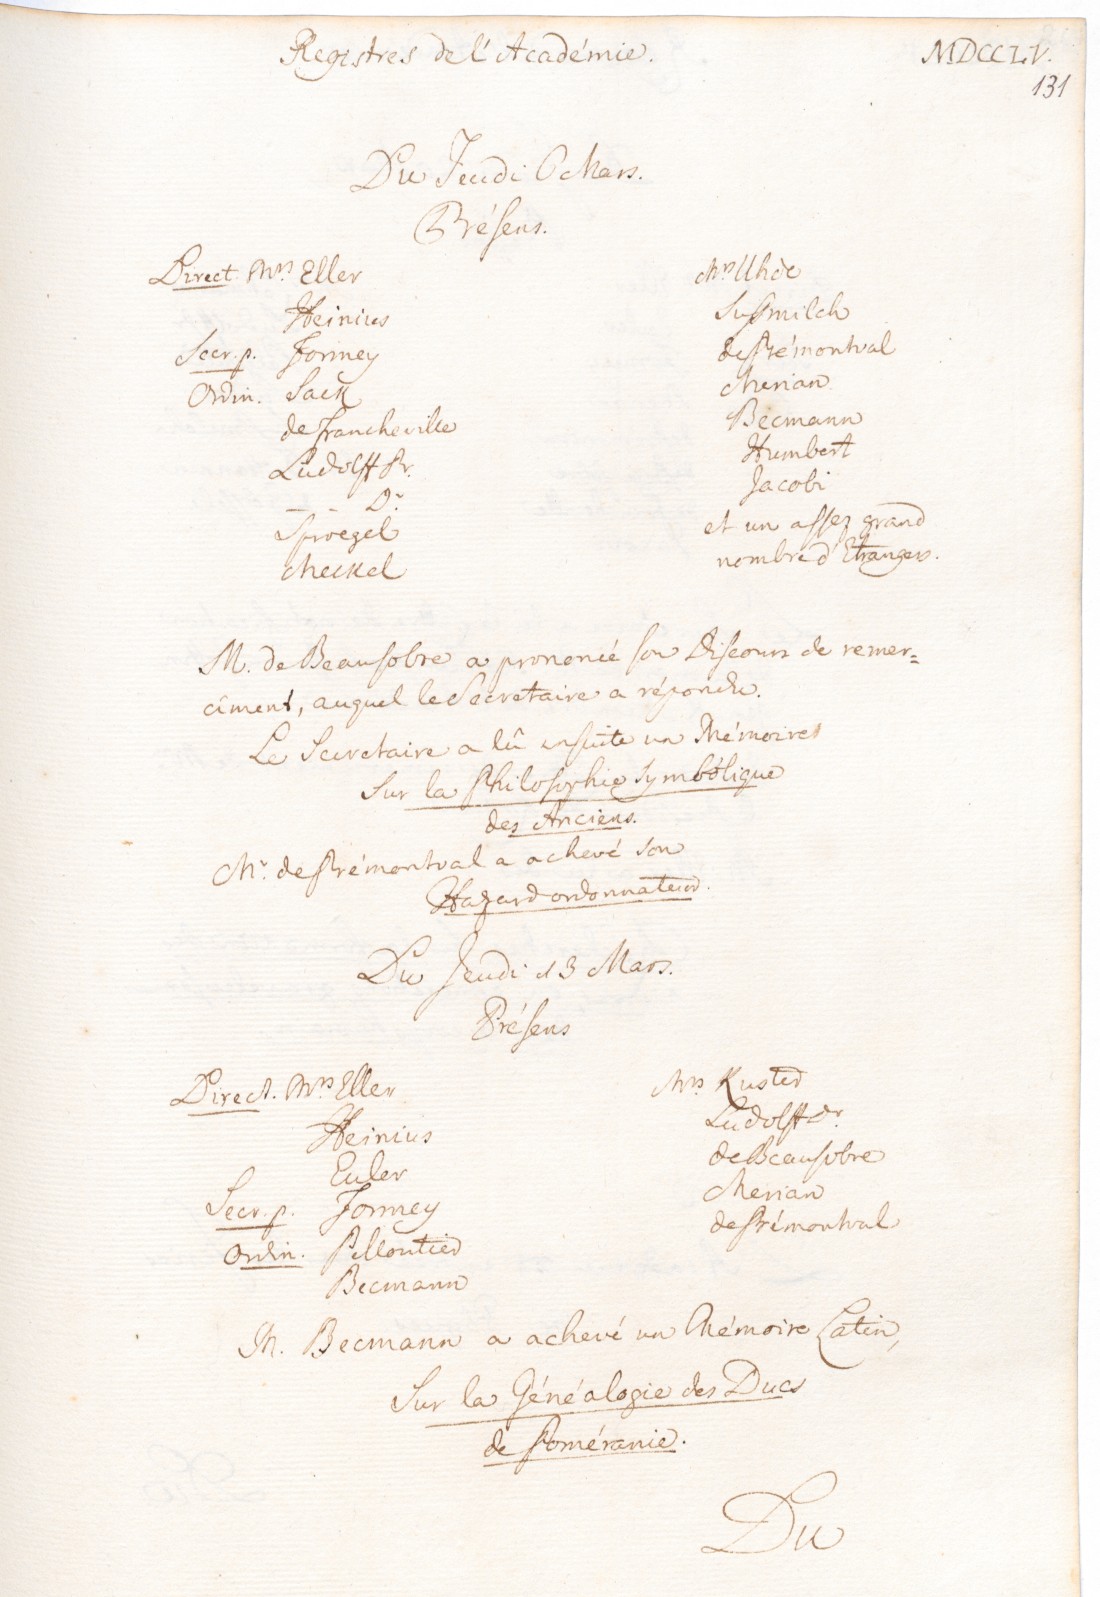 Registres de l'Académie.
MDCCLV.
131
Du Jeudi 6 Mars.
Présens.
Direct. Mrs Eller
Heinius
Secr. p. Formey
Ordin. Sack
de Francheville
Ludolff Pr.
_ _ Dr.
Sproegel
Meckel
Mrs Uhde
Susmilch
de Prémontval
Merian
Becmann
Humbert
Jacobi
et un assez grand
nombre d'Etrangers.
M. de Beausobre a prononcé son Discours de remer=
ciment, auquel le Secretaire a répondu.
Le Secretaire a lû ensuite un Mémoire
Sur la Philosophie symbolique
des Anciens.
Mr. de Prémontval a achevé son
Hazard ordonnateur.
Du Jeudi 13 Mars.
Présens
Direct. Mrs Eller
Heinius
Euler
Secr. p. Formey
Ordin. Pelloutier
Becmann
Mrs Kuster
Ludolff Dr.
de Beausobre
Merian
de Prémontval
M. Becmann a achevé un Mémoire Latin,
Sur la Généalogie des Ducs
de Poméranie.
Du